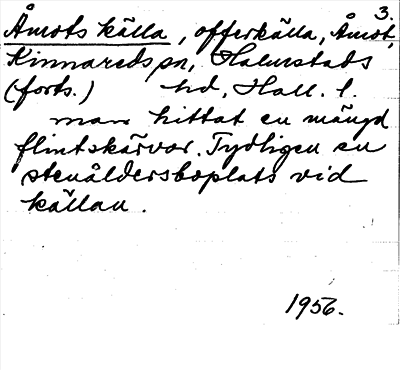 3.
Åmots källa, offerkälla, Åmot,
Kinnareds sn, Halmstads
(forts.) hd, Hall. l.
man hittat en mängd
flintskärvor. Tydligen en
stenåldersboplats vid
källan.
1956.